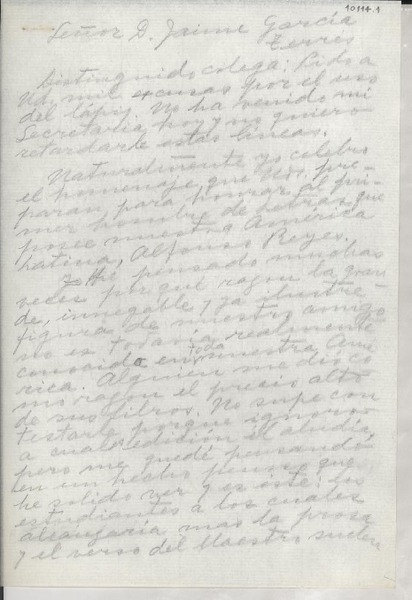 10114.1
Señor D. Jaime García
Terrés
Distinguido colega: Pido a
Ud. mil excusas por el uso
del lápiz. No ha venido mi
Secretaria hoy y no quiero
retardarle estas líneas.
Naturalmente yo celebro
el homenaje que Uds. pre-
paran para honrar al pri-
mer hombre de letras que
posee nuestra América
Latina, Alfonso Reyes.
Yo he pensado muchas
veces por qué razón la gran
de, innegable y ya ilustre
figura de nuestro amigo
no es todavía realmente
conocida en toda nuestra Amé
rica. Alguien me dio co
mo razón el precio alto
de sus libros. No supe con
testarle porque ignoro
a cual edición él aludía,
pero me quedé pensando
en un hecho penoso que
he solido ver y es este: los
estudiantes a los cuales
alcanzaría mas la prosa
y el verso del Maestro suelen